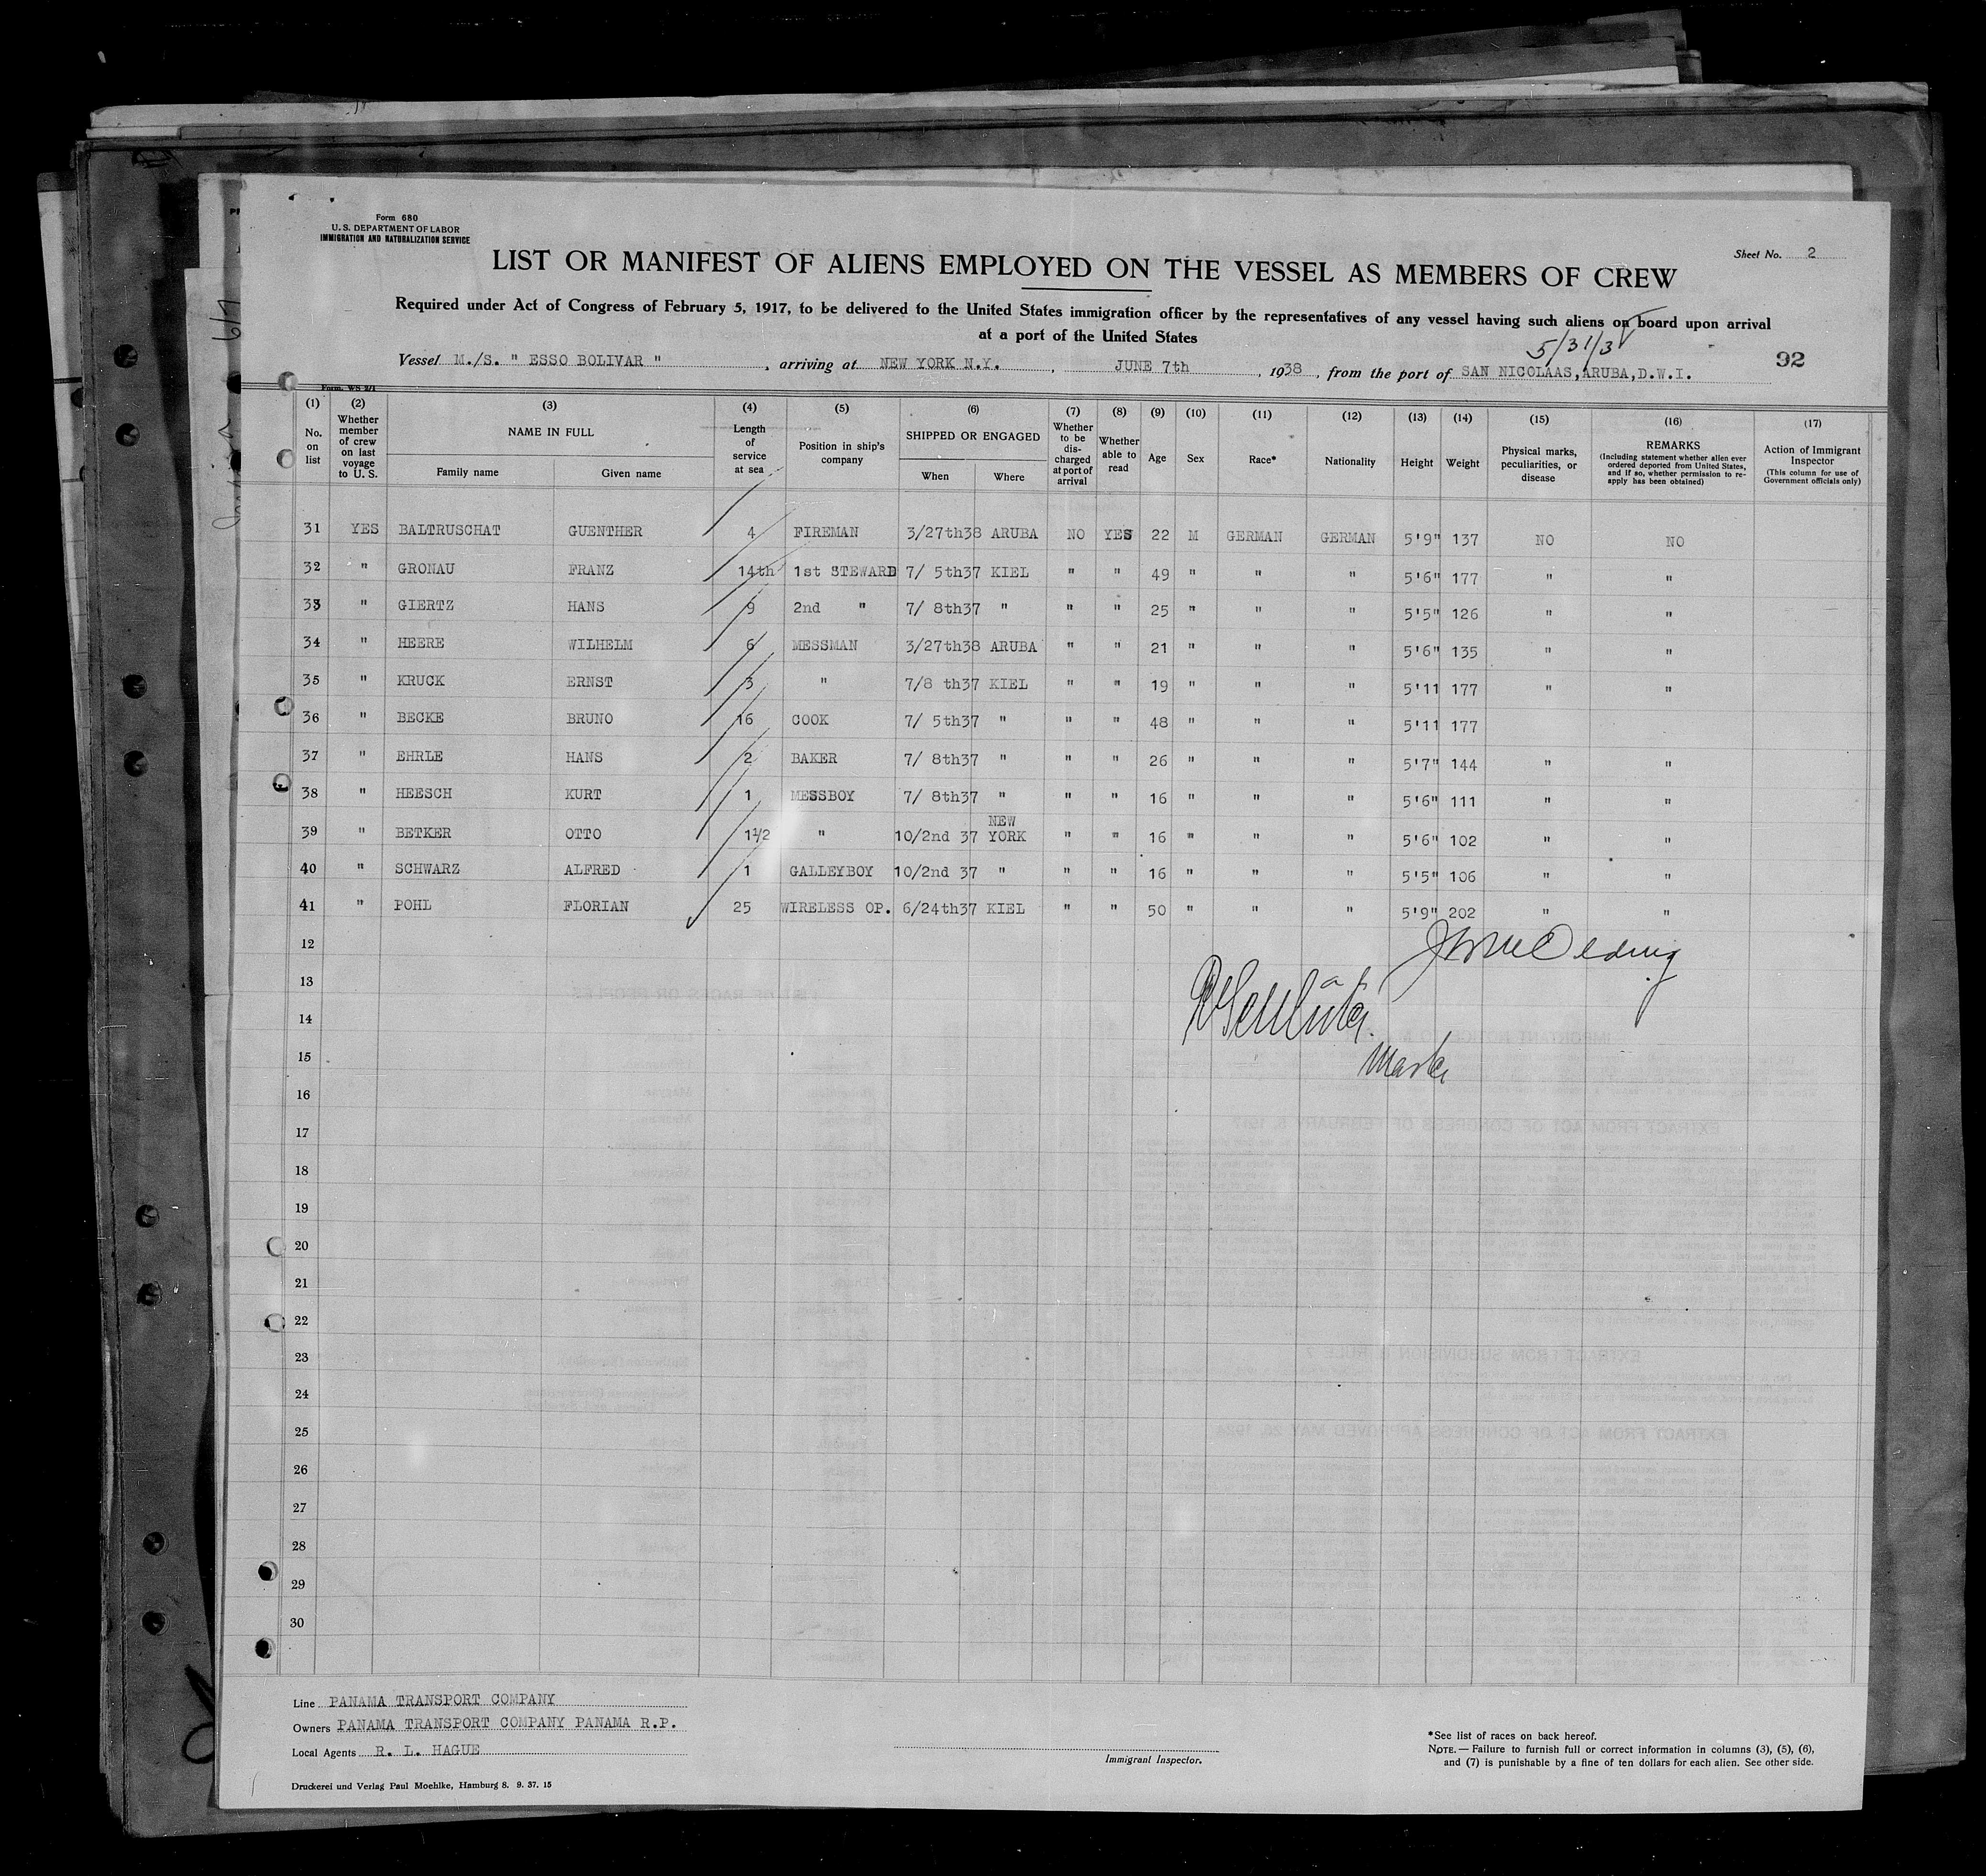 Form 680
U. S. DEPARTMENT OF LABOR
IMMIGRATION AND NATURALIZATION SERVICE
Sheet No. 2
LIST OR MANIFEST OF ALIENS EMPLOYED ON THE VESSEL AS MEMBERS OF CREW
Required under Act of Congress of February 5, 1917, to be delivered to the United States immigration officer by the representatives of any vessel having such aliens on board upon arrival
at a port of the United States
5/31/38
92
Vessel M./S. " ESSO BOLIVAR " , arriving at NEW YORK N.Y. , JUNE 7th , 1938 , from the port of SAN NICOLAAS, ARUBA, D.W.I.
Form. WS 2/1
(1) No. on list
(2) Whether member of crew on last voyage to U. S.
(3) NAME IN FULL
Family name Given name
(4) Length of service at sea
(5) Position in ship's company
(6) SHIPPED OR ENGAGED
When Where
(7) Whether to be discharged at port of arrival
(8) Whether able to read
(9) Age
(10) Sex
(11) Race*
(12) Nationality
(13) Height
(14) Weight
(15) Physical marks, peculiarities, or disease
(16) REMARKS (Including statement whether alien ever ordered deported from United States, and if so, whether permission to re-apply has been obtained)
(17) Action of Immigrant Inspector (This column for use of Government officials only)
31 YES BALTRUSCHAT GUENTHER 4 FIREMAN 3/27th38 ARUBA NO YES 22 M GERMAN GERMAN 5'9" 137 NO NO
32 " GRONAU FRANZ 14th 1st STEWARD 7/ 5th37 KIEL " " 49 " " " 5'6" 177 " "
33 " GIERTZ HANS 9 2nd " 7/ 8th37 " " " 25 " " " 5'5" 126 " "
34 " HEERE WILHELM 6 MESSMAN 3/27th38 ARUBA " " 21 " " " 5'6" 135 " "
35 " KRUCK ERNST 3 " 7/8 th37 KIEL " " 19 " " " 5'11 177 " "
36 " BECKE BRUNO 16 COOK 7/ 5th37 " " " 48 " " " 5'11 177
37 " EHRLE HANS 2 BAKER 7/ 8th37 " " " 26 " " " 5'7" 144 " "
38 " HEESCH KURT 1 MESSBOY 7/ 8th37 " " " 16 " " " 5'6" 111 " "
39 " BETKER OTTO 1½ " 10/2nd 37 NEW YORK " " 16 " " " 5'6" 102 " "
40 " SCHWARZ ALFRED 1 GALLEYBOY 10/2nd 37 " " " 16 " " " 5'5" 106 " "
41 " POHL FLORIAN 25 WIRELESS OP. 6/24th37 KIEL " " 50 " " " 5'9" 202 " "
12
13
14
15
Master
16
17
18
19
20
21
22
23
24
25
26
27
28
29
30
Line PANAMA TRANSPORT COMPANY
Owners PANAMA TRANSPORT COMPANY PANAMA R.P.
Local Agents R. L. HAGUE
Immigrant Inspector.
*See list of races on back hereof.
NOTE.—Failure to furnish full or correct information in columns (3), (5), (6),
and (7) is punishable by a fine of ten dollars for each alien. See other side.
Druckerei und Verlag Paul Moehlke, Hamburg 8. 9. 37. 15